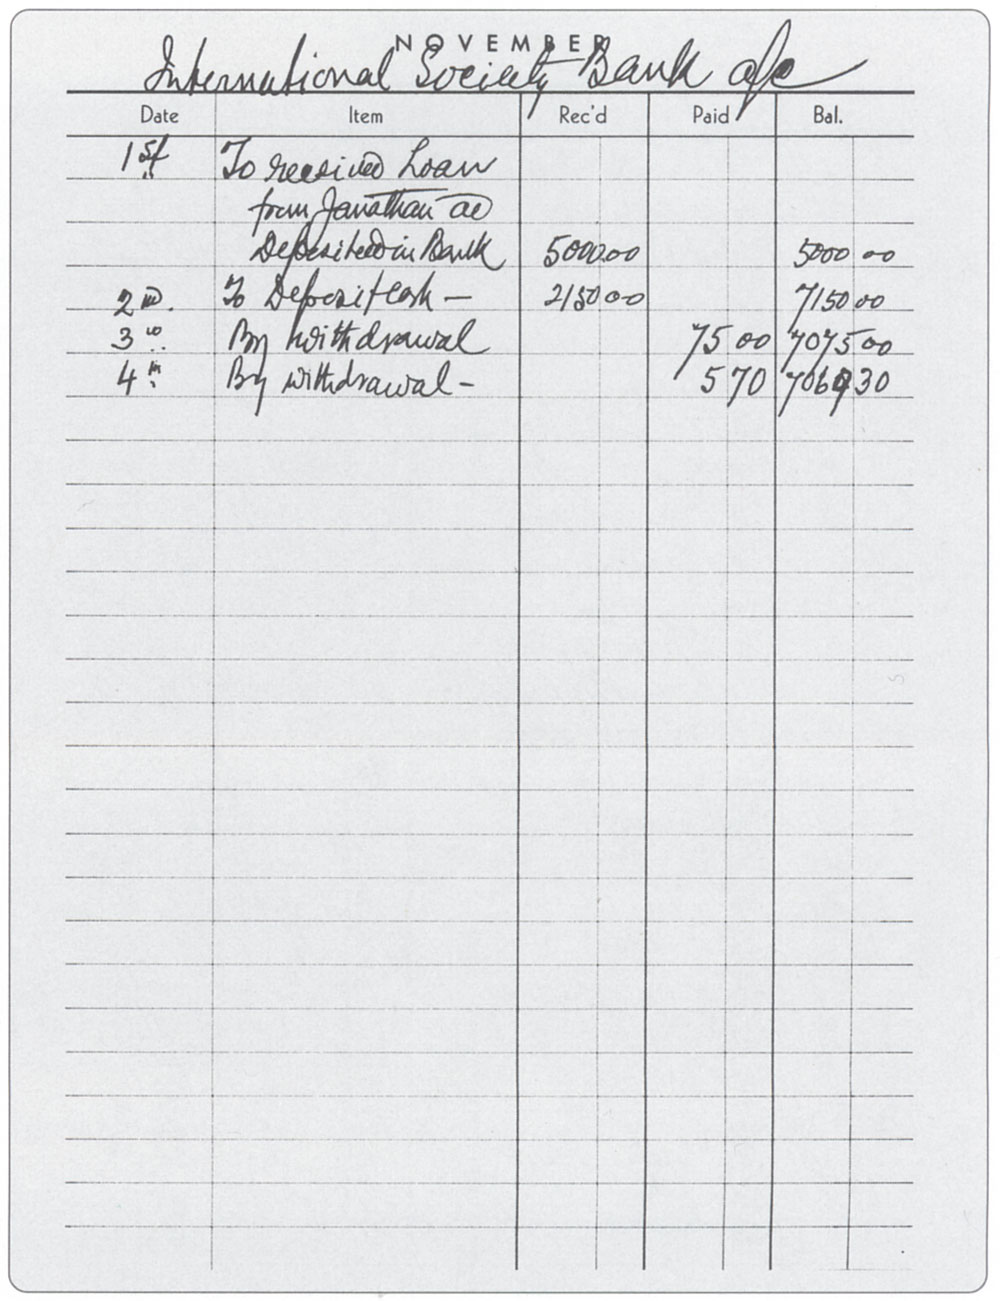 NOVEMBER
International Society Bank a/c
Date Item Rec'd Paid Bal.
1st To received Loan
from Janathan ac
Deposited in Bank 5000.00 5000 00
2nd. To Deposit cash — 2150 00 7150 00
3 By withdrawal 75 00 7075 00
4th By withdrawal - 5 70 7069 30